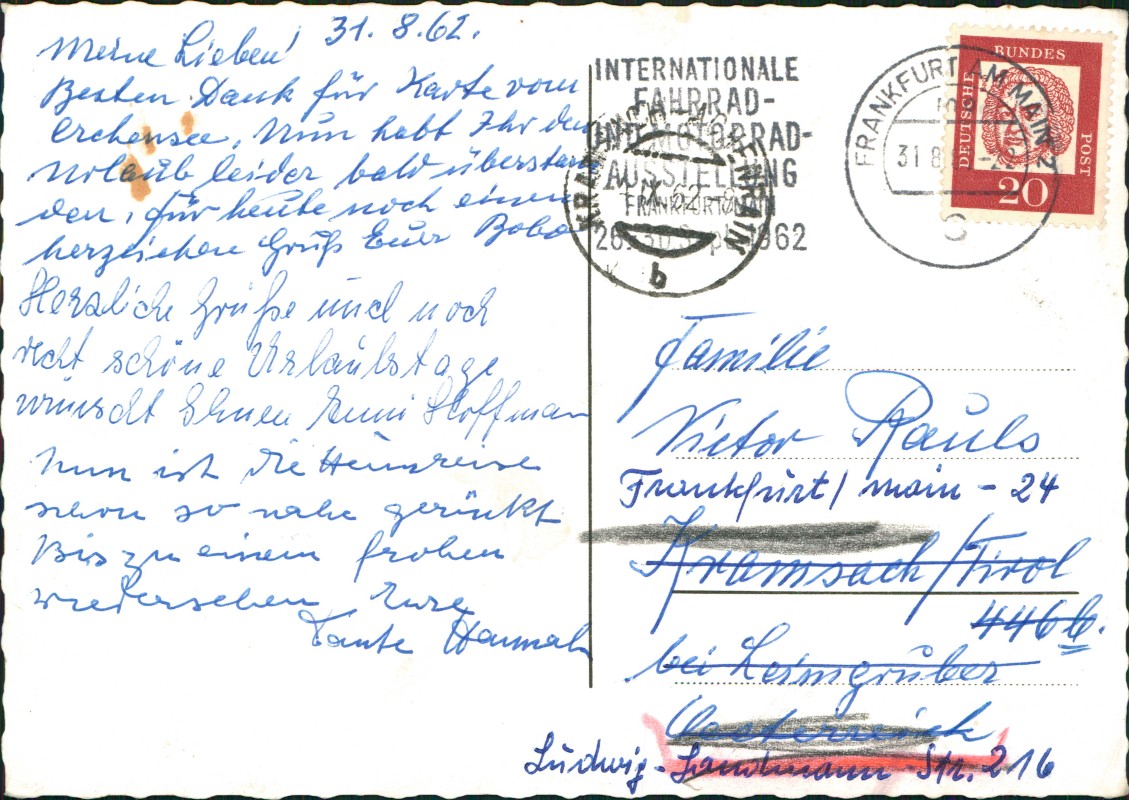 Meine Lieben! 31. 8. 62.
Besten Dank für Karte vom
Achensee, Nun habt Ihr den
Urlaub leider bald überstan
den, für heute noch einen
herzlichen Gruß Euer Bobo
Herzliche Grüße und noch
recht schöne Urlaubstage
wünscht Ihnen Emmi Hoffmann
Nun ist die Heimreise
schon so nahe gerückt
Bis zu einem frohen
wiedersehen Eure
Tante Hannah
INTERNATIONALE
FAHRRAD-
UND MOTORRAD-
AUSSTELLUNG
FRANKFURT/MAIN
26.-30. Sept. 1962
KRAMSACH ACHENRAIN
62-8
b
FRANKFURT AM MAIN 2
31.8
c
DEUTSCHE
BUNDES
POST
20
Familie
Victor Rauls
Frankfurt/main - 24
Kramsach/Tirol
446 b.
bei Leimgruber
Oesterreich
Ludwig-Landmann Str. 216